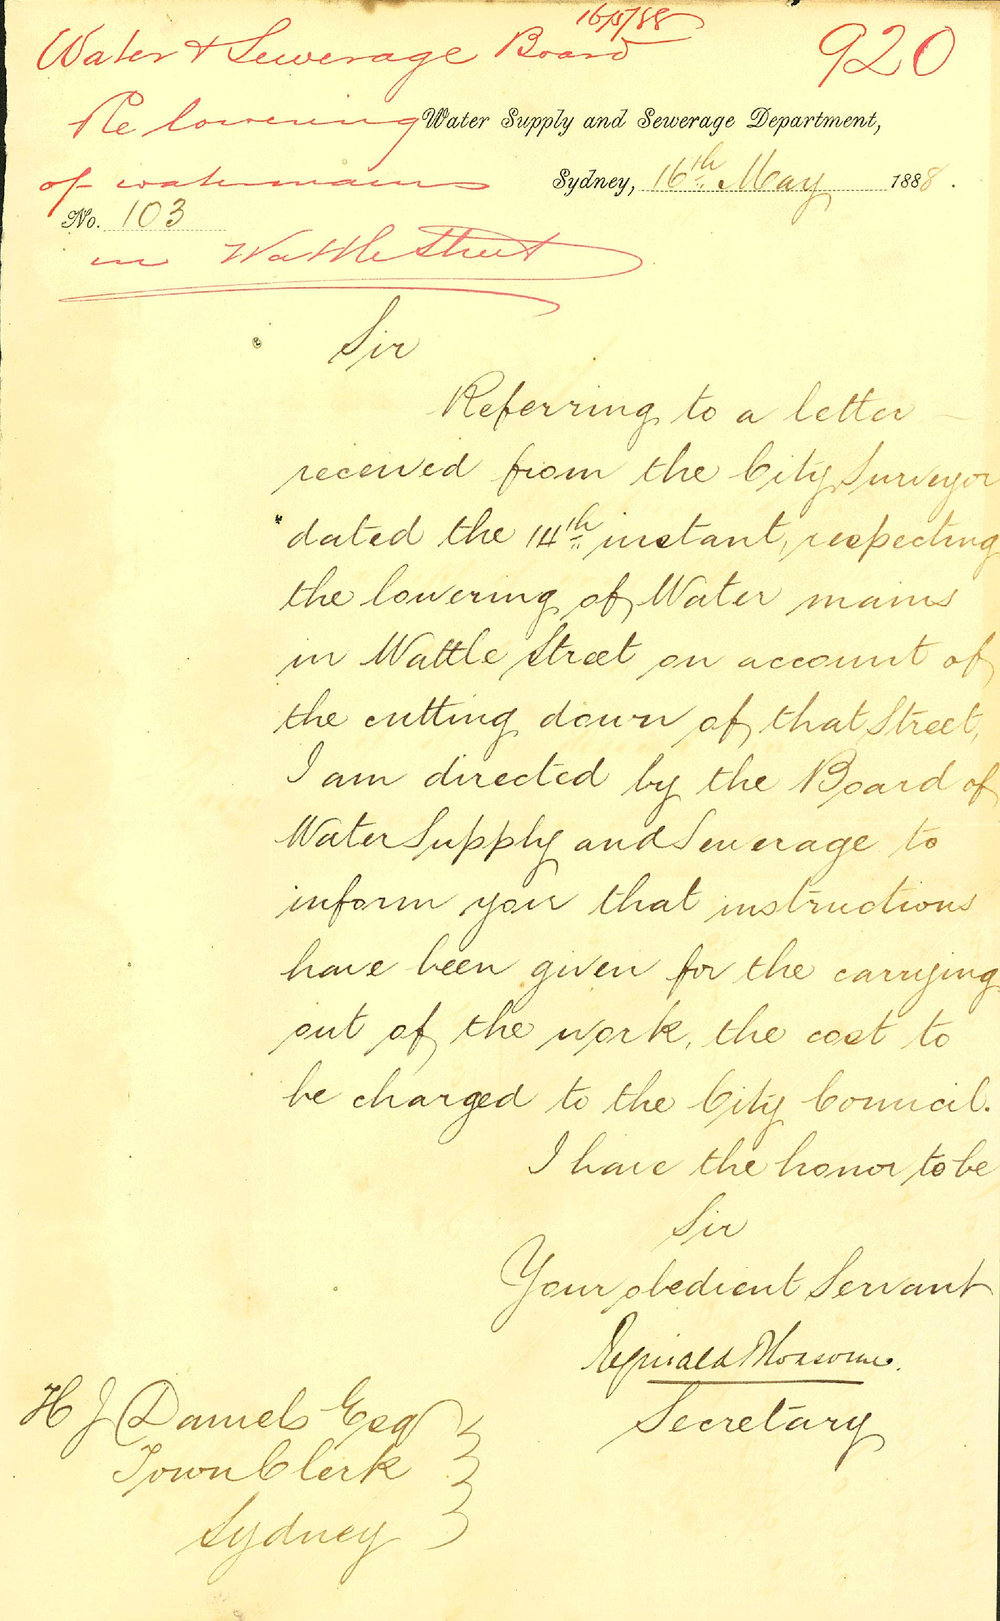 16/5/88
Water & Sewerage Board
920
Re lowering
of watermains
in Wattle Street
Water Supply and Sewerage Department,
Sydney, 16th May 1888.
No. 103
Sir
Referring to a letter
received from the City Surveyor
dated the 14th instant, respecting
the lowering of Water mains
in Wattle Street on account of
the cutting down of that Street,
I am directed by the Board of
Water Supply and Sewerage to
inform you that instructions
have been given for the carrying
out of the work, the cost to
be charged to the City Council.
I have the honor to be
Sir
Your obedient Servant
Reginald
Secretary
H J Daniels Esq
Town Clerk
Sydney